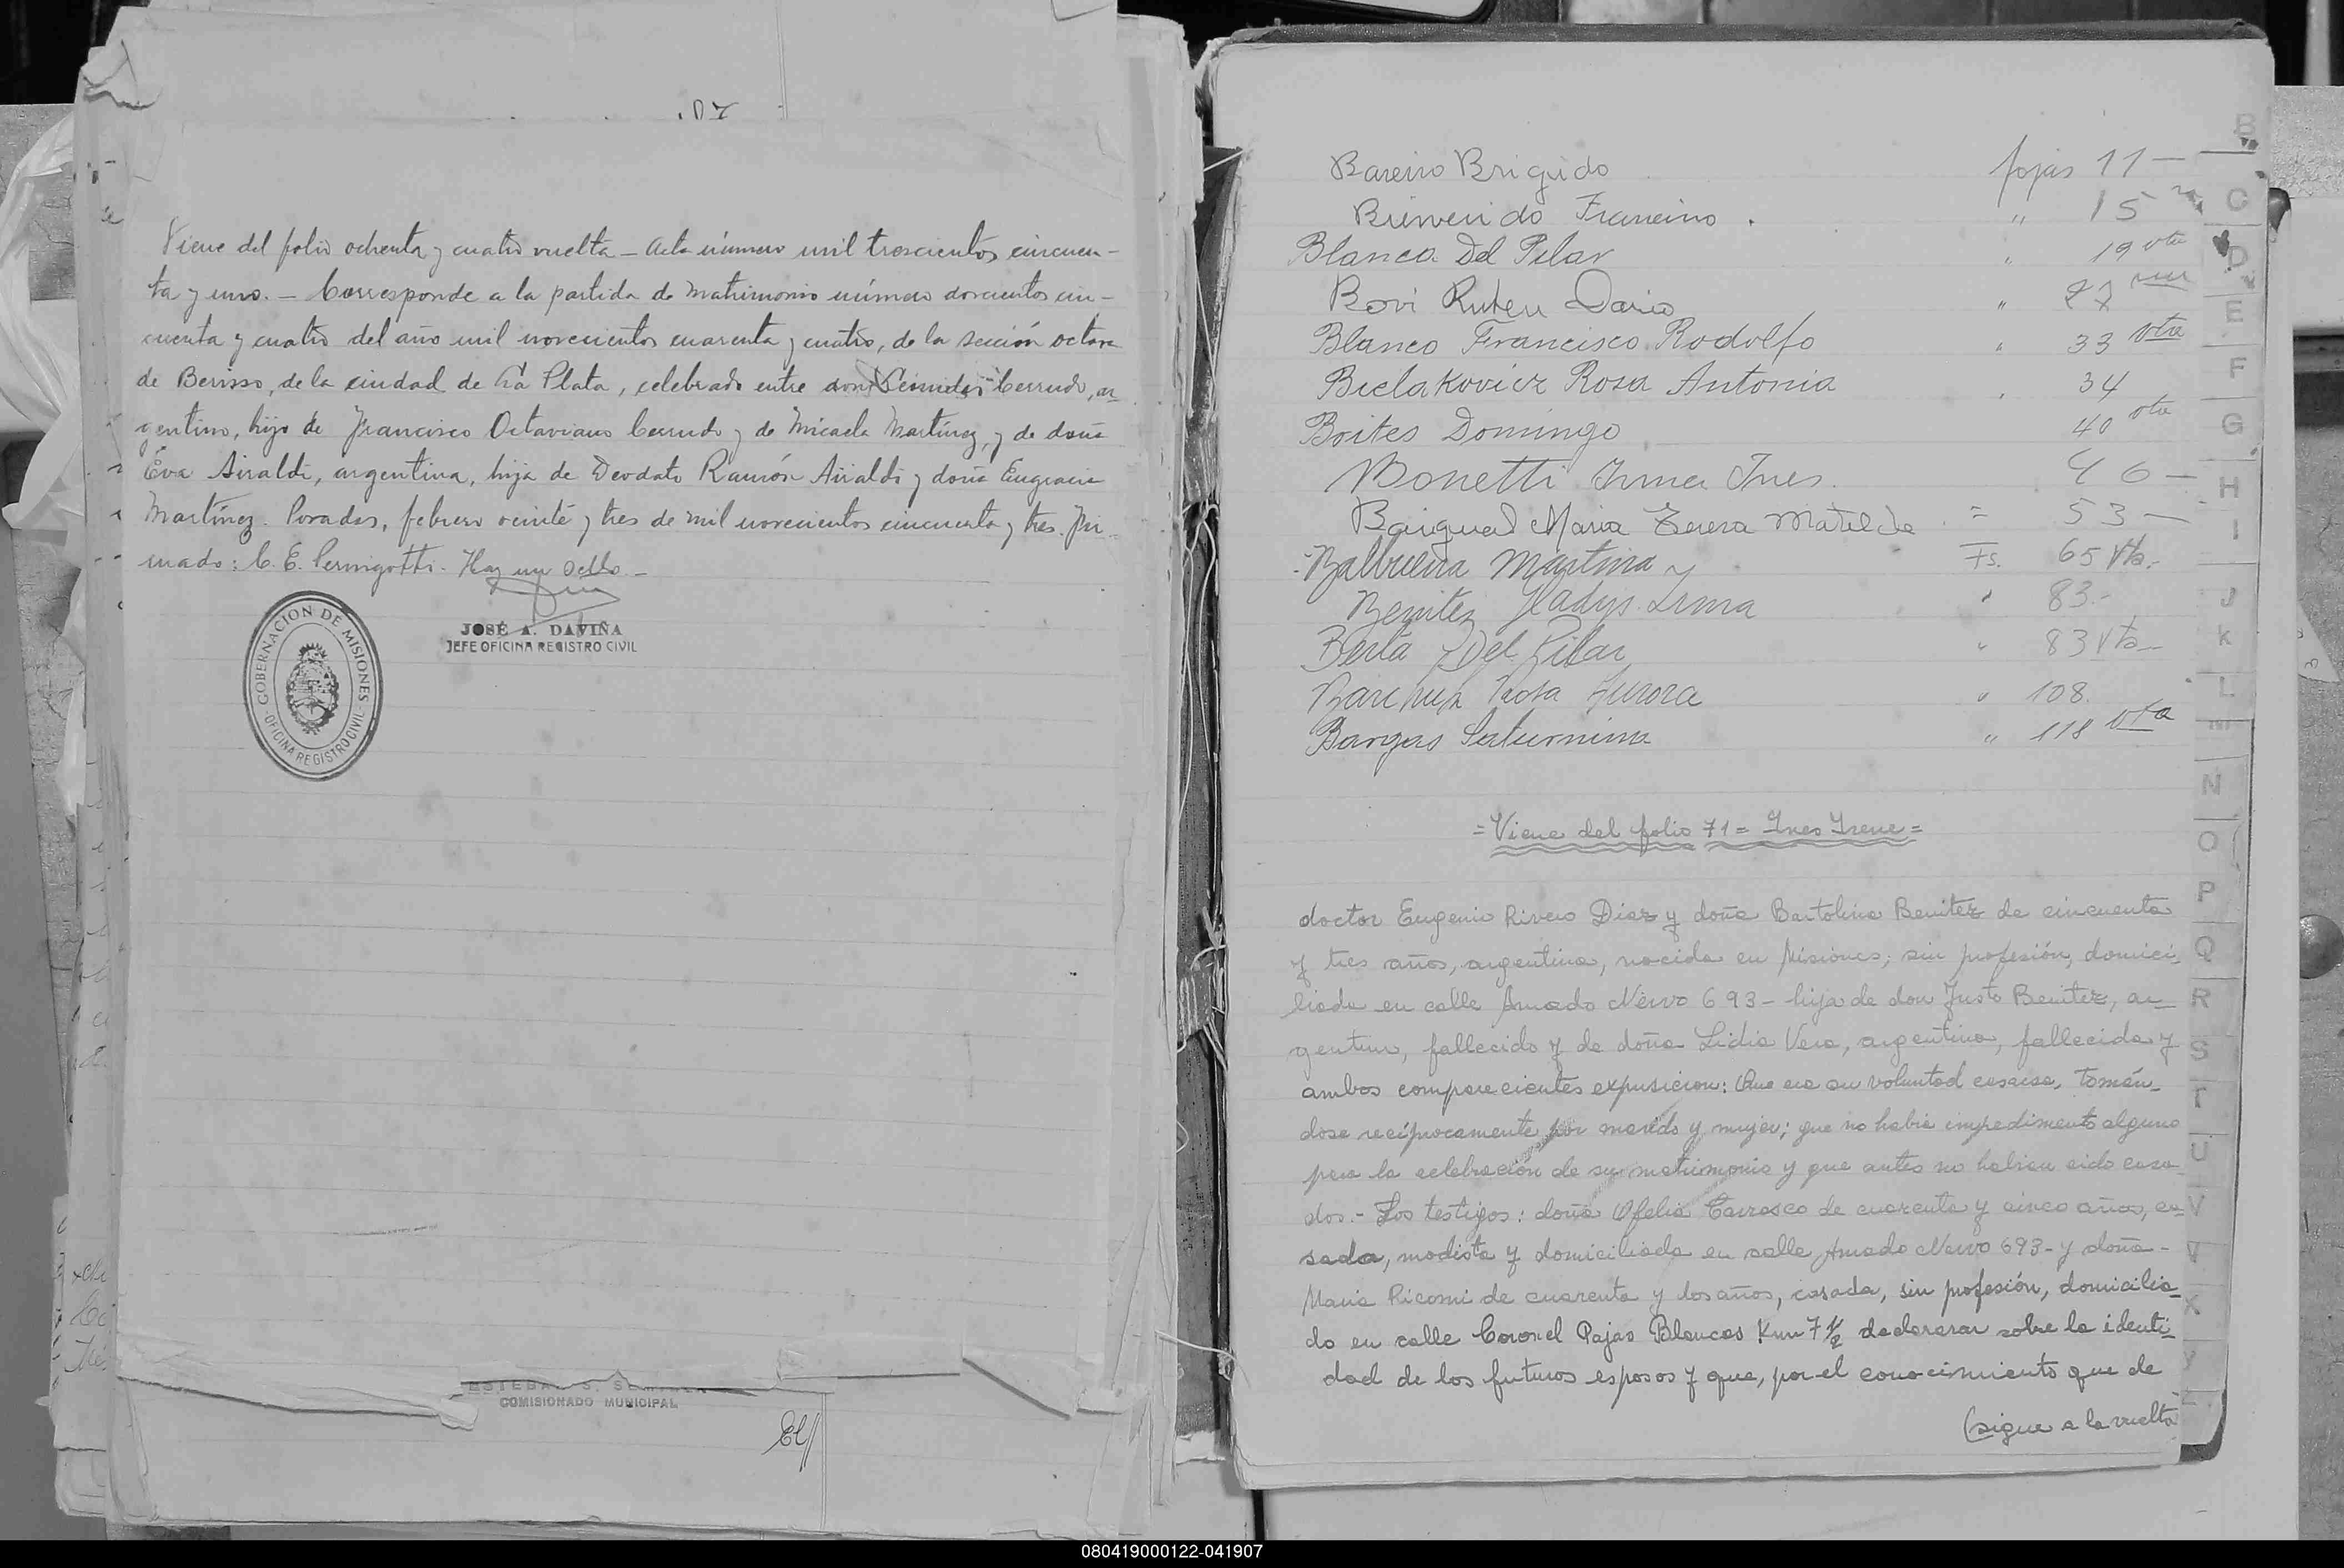 Viene del folio ochenta y cuatro vuelta - Acta número mil trescientos cincuen-
ta y uno. - Corresponde a la partida de matrimonio número doscientos cin-
cuenta y cuatro del año mil novecientos cuarenta y cuatro, de la sección octava
de Berisso, de la ciudad de La Plata, celebrado entre don Cerrudo, ar-
gentino, hijo de Francisco Octaviano Cerrudo y de Micaela Martínez, y de doña
Eva Airaldi, argentina, hija de Deodato Ramón Airaldi y doña Engracia
Martínez. Posadas, febrero veinte y tres de mil novecientos cincuenta y tres. Fir-
mado: C. E. Pernigotti. Hay un sello. -
JOSÉ A. DAVIÑA
JEFE OFICINA REGISTRO CIVIL
GOBERNACION DE MISIONES
OFICINA REGISTRO CIVIL
COMISIONADO MUNICIPAL
Bareiro Brigido fojas 11 -
Bienvenido Francisno . " 15
Blanca Del Pilar " 19 vta
Bovi Ruben Dario "
Blanco Francisco Rodolfo " 33 vta
Bielakovicz Rosa Antonia " 34
Boites Domingo 40 vta
Bonetti Irma Ines. 46 -
Maria Teresa Matilde = 53 -
Balbuena Martina Fs. 65 Vta.-
Benitez Gladys Irma " 83.-
Berta Del Pilar " 83 Vta-
Rosa Aurora " 108.
Bargas Saturnina " 118 vta
= Viene del folio 71 = Ines Irene =
doctor Eugenio Rivero Diaz y doña Bartolina Benitez de cincuenta
y tres años, argentina, nacida en Misiones; sin profesión, domici-
liada en calle Amado Nervo 693 - hija de don Justo Benitez, ar-
gentino, fallecido y de doña Lidia Vera, argentina, fallecida y
ambos comparecientes expusieron: Que era su voluntad casarse, tomán-
dose recíprocamente por marido y mujer; que no había impedimento alguno
para la celebración de su matrimonio y que antes no habían sido casa-
dos.- Los testigos: doña Ofelia Carrasco de cuarenta y cinco años, ca-
sada, modista y domiciliada en calle Amado Nervo 693 - y doña -
Maria Ricomi de cuarenta y dos años, casada, sin profesión, domicilia-
da en calle Coronel Pajas Blancas Km 7 1/2 declararar sobre la identi-
dad de los futuros esposos y que, por el conocimiento que de
(sigue a la vuelta
B
C
D
E
F
G
H
I
J
K
L
M
N
O
P
Q
R
S
T
U
V
X
Y
Z
080419000122-041907